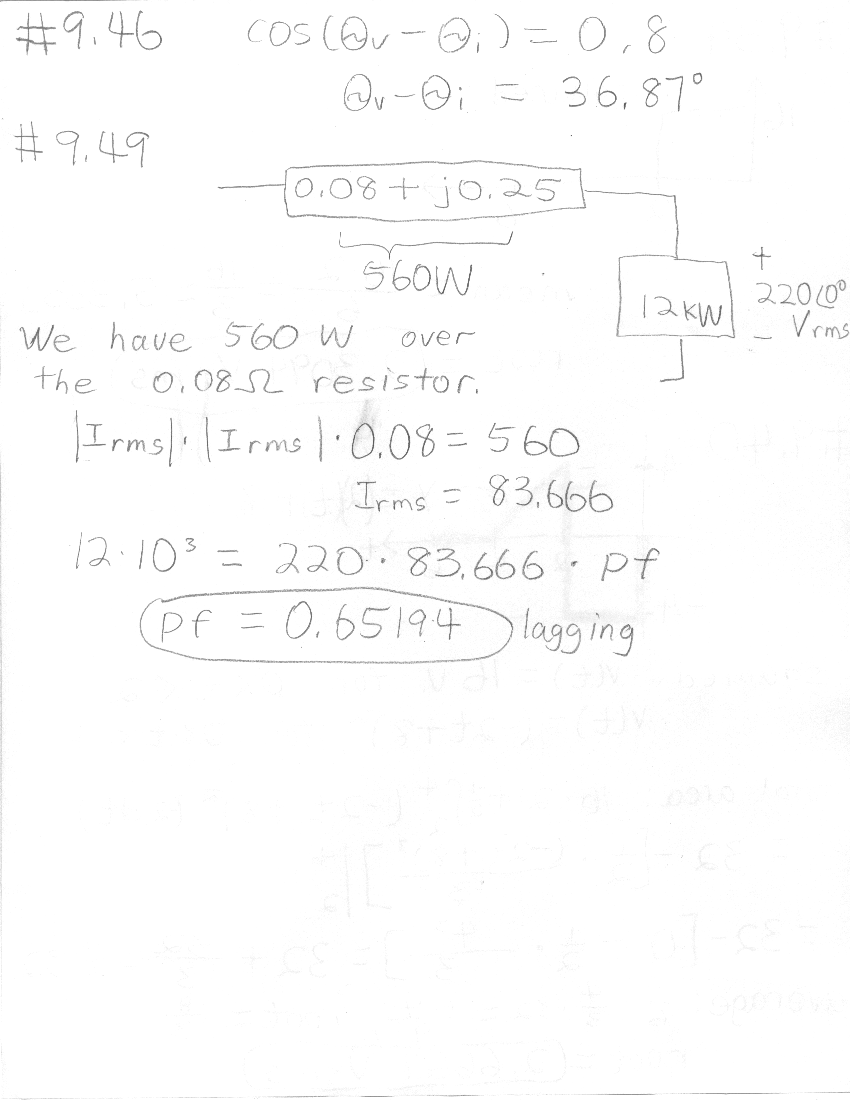 #9.46 cos(θv - θi) = 0.8
θv - θi = 36.87°
#9.49
0.08 + j0.25
560W
12kW
+
220∠0°
- Vrms
We have 560 W over
the 0.08Ω resistor.
|Irms|·|Irms|·0.08 = 560
Irms = 83.666
12·10³ = 220·83.666·pf
pf = 0.65194 lagging